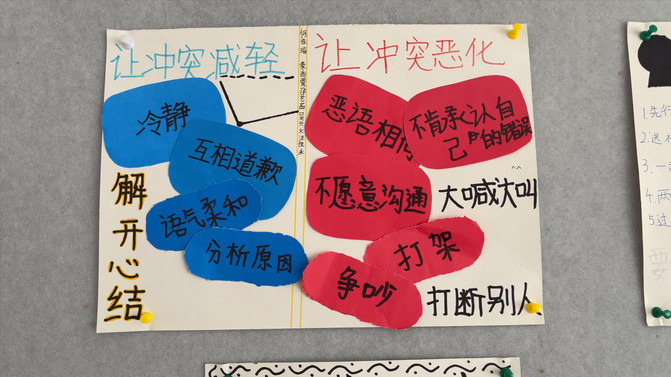 让冲突减轻
冷静
互相道歉
语气柔和
分析原因
解开心结
让冲突恶化
恶语相
不肯承认自
己的错误
不愿意沟通
大喊大叫
打架
争吵
打断别人
1.先行
2.送
3.一
4.两
5.过